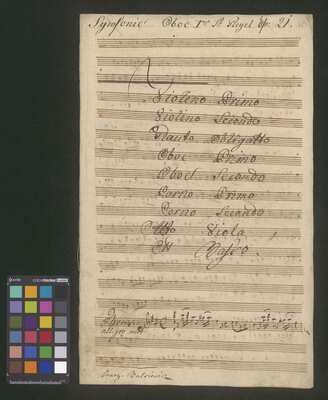 Synfonie Oboe 1mo Pleyel Op. 21.
Violino Primo
Violino Secondo
Flauto Obligatto
Oboe Primo
Oboe Secondo
Corno Primo
Corno Secondo
Alto Viola
Et Basso.
allegro